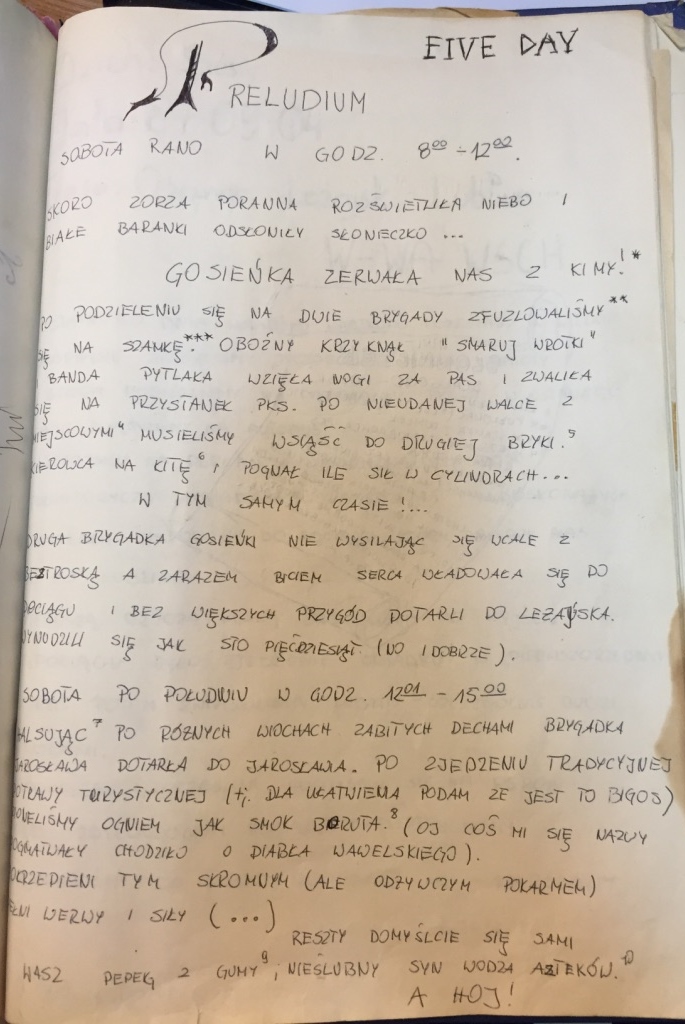 FIVE DAY
PRELUDIUM
SOBOTA RANO W GODZ. 8⁰⁰ - 12⁰⁰.
SKORO ZORZA PORANNA ROZŚWIETLIŁA NIEBO I
BIAŁE BARANKI ODSŁONIŁY SŁONECZKO ...
GOSIEŃKA ZERWAŁA NAS Z KIMY!*
PO PODZIELENIU SIĘ NA DWIE BRYGADY ZFUZLOWALIŚMY**
SIĘ NA SZAMKĘ.*** OBOŹNY KRZYKNĄŁ "SMARUJ WROTKI"
I BANDA PYTLAKA WZIĘŁA NOGI ZA PAS I ZWALIŁA
SIĘ NA PRZYSTANEK PKS. PO NIEUDANEJ WALCE Z
MIEJSCOWYMI⁴ MUSIELIŚMY WSIĄŚĆ DO DRUGIEJ BRYKI.⁵
KIEROWCA NA KITĘ⁶ I POGNAŁ ILE SIŁ W CYLINDRACH...
W TYM SAMYM CZASIE!...
DRUGA BRYGADKA GOSIEŃKI NIE WYSILAJĄC SIĘ WCALE Z
BEZTROSKĄ A ZARAZEM BICIEM SERCA WŁADOWAŁA SIĘ DO
POCIĄGU I BEZ WIĘKSZYCH PRZYGÓD DOTARLI DO LEŻAJSKA.
WYNUDZILI SIĘ JAK STO PIĘĆDZIESIĄT (NO I DOBRZE).
SOBOTA PO POŁUDNIU W GODZ. 12⁰¹ - 15⁰⁰
WALSUJĄC⁷ PO RÓŻNYCH WIOCHACH ZABITYCH DECHAMI BRYGADKA
JAROSŁAWA DOTARŁA DO JAROSŁAWIA. PO ZJEDZENIU TRADYCYJNEJ
POTRAWY TURYSTYCZNEJ (tj. DLA UŁATWIENIA PODAM ŻE JEST TO BIGOS)
ZIONELIŚMY OGNIEM JAK SMOK BORUTA.⁸ (OJ COŚ MI SIĘ NAZWY
POGMATWAŁY CHODZIŁO O DIABŁA WAWELSKIEGO).
POKRZEPIENI TYM SKROMNYM (ALE ODŻYWCZYM POKARMEM)
PEŁNI WERWY I SIŁY (...)
RESZTY DOMYŚLCIE SIĘ SAMI
WASZ PEPEG Z GUMY⁹, NIEŚLUBNY SYN WODZA AZTEKÓW.¹⁰
A HOJ!